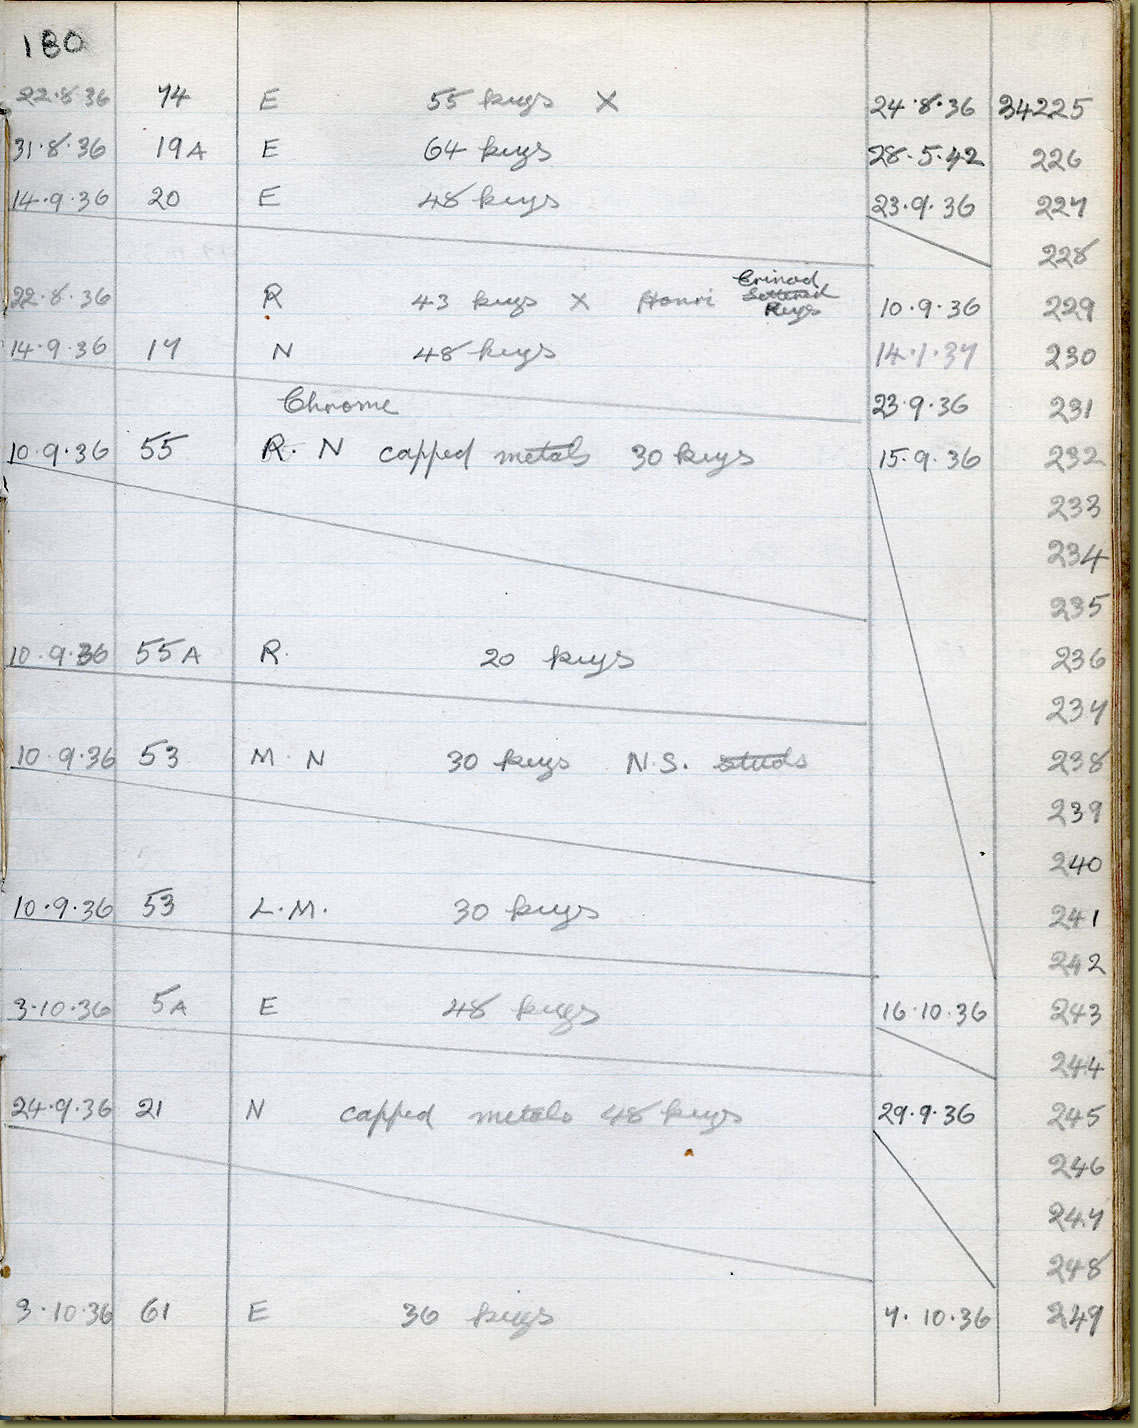 180
22.8.36 74 E 55 keys X 24.8.36 34225
31.8.36 19A E 64 keys 28.5.42 226
14.9.36 20 E 48 keys 23.9.36 227
228
22.8.36 R 43 keys X 10.9.36 229
Keys
14.9.36 17 N 48 keys 14.1.37 230
Chrome 23.9.36 231
10.9.36 55 R. N capped metals 30 keys 15.9.36 232
233
234
235
10.9.36 55A R. 20 keys 236
237
10.9.36 53 M. N 30 keys N.S. studs 238
239
240
10.9.36 53 L.M. 30 keys 241
242
3.10.36 5A E 48 keys 16.10.36 243
244
24.9.36 21 N capped metals 48 keys 29.9.36 245
246
247
248
3.10.36 61 E 36 keys 7.10.36 249